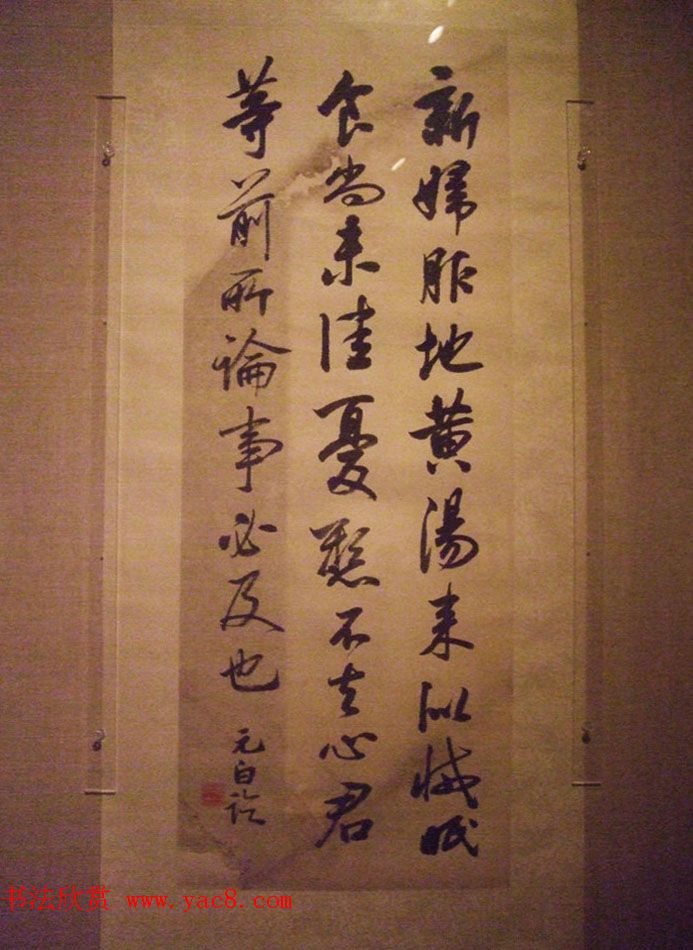 新婦服地黄湯来似減眠
食尚未佳憂懸不去心君
等前所論事必及也
元白臨
书法欣赏 www.yac8.com